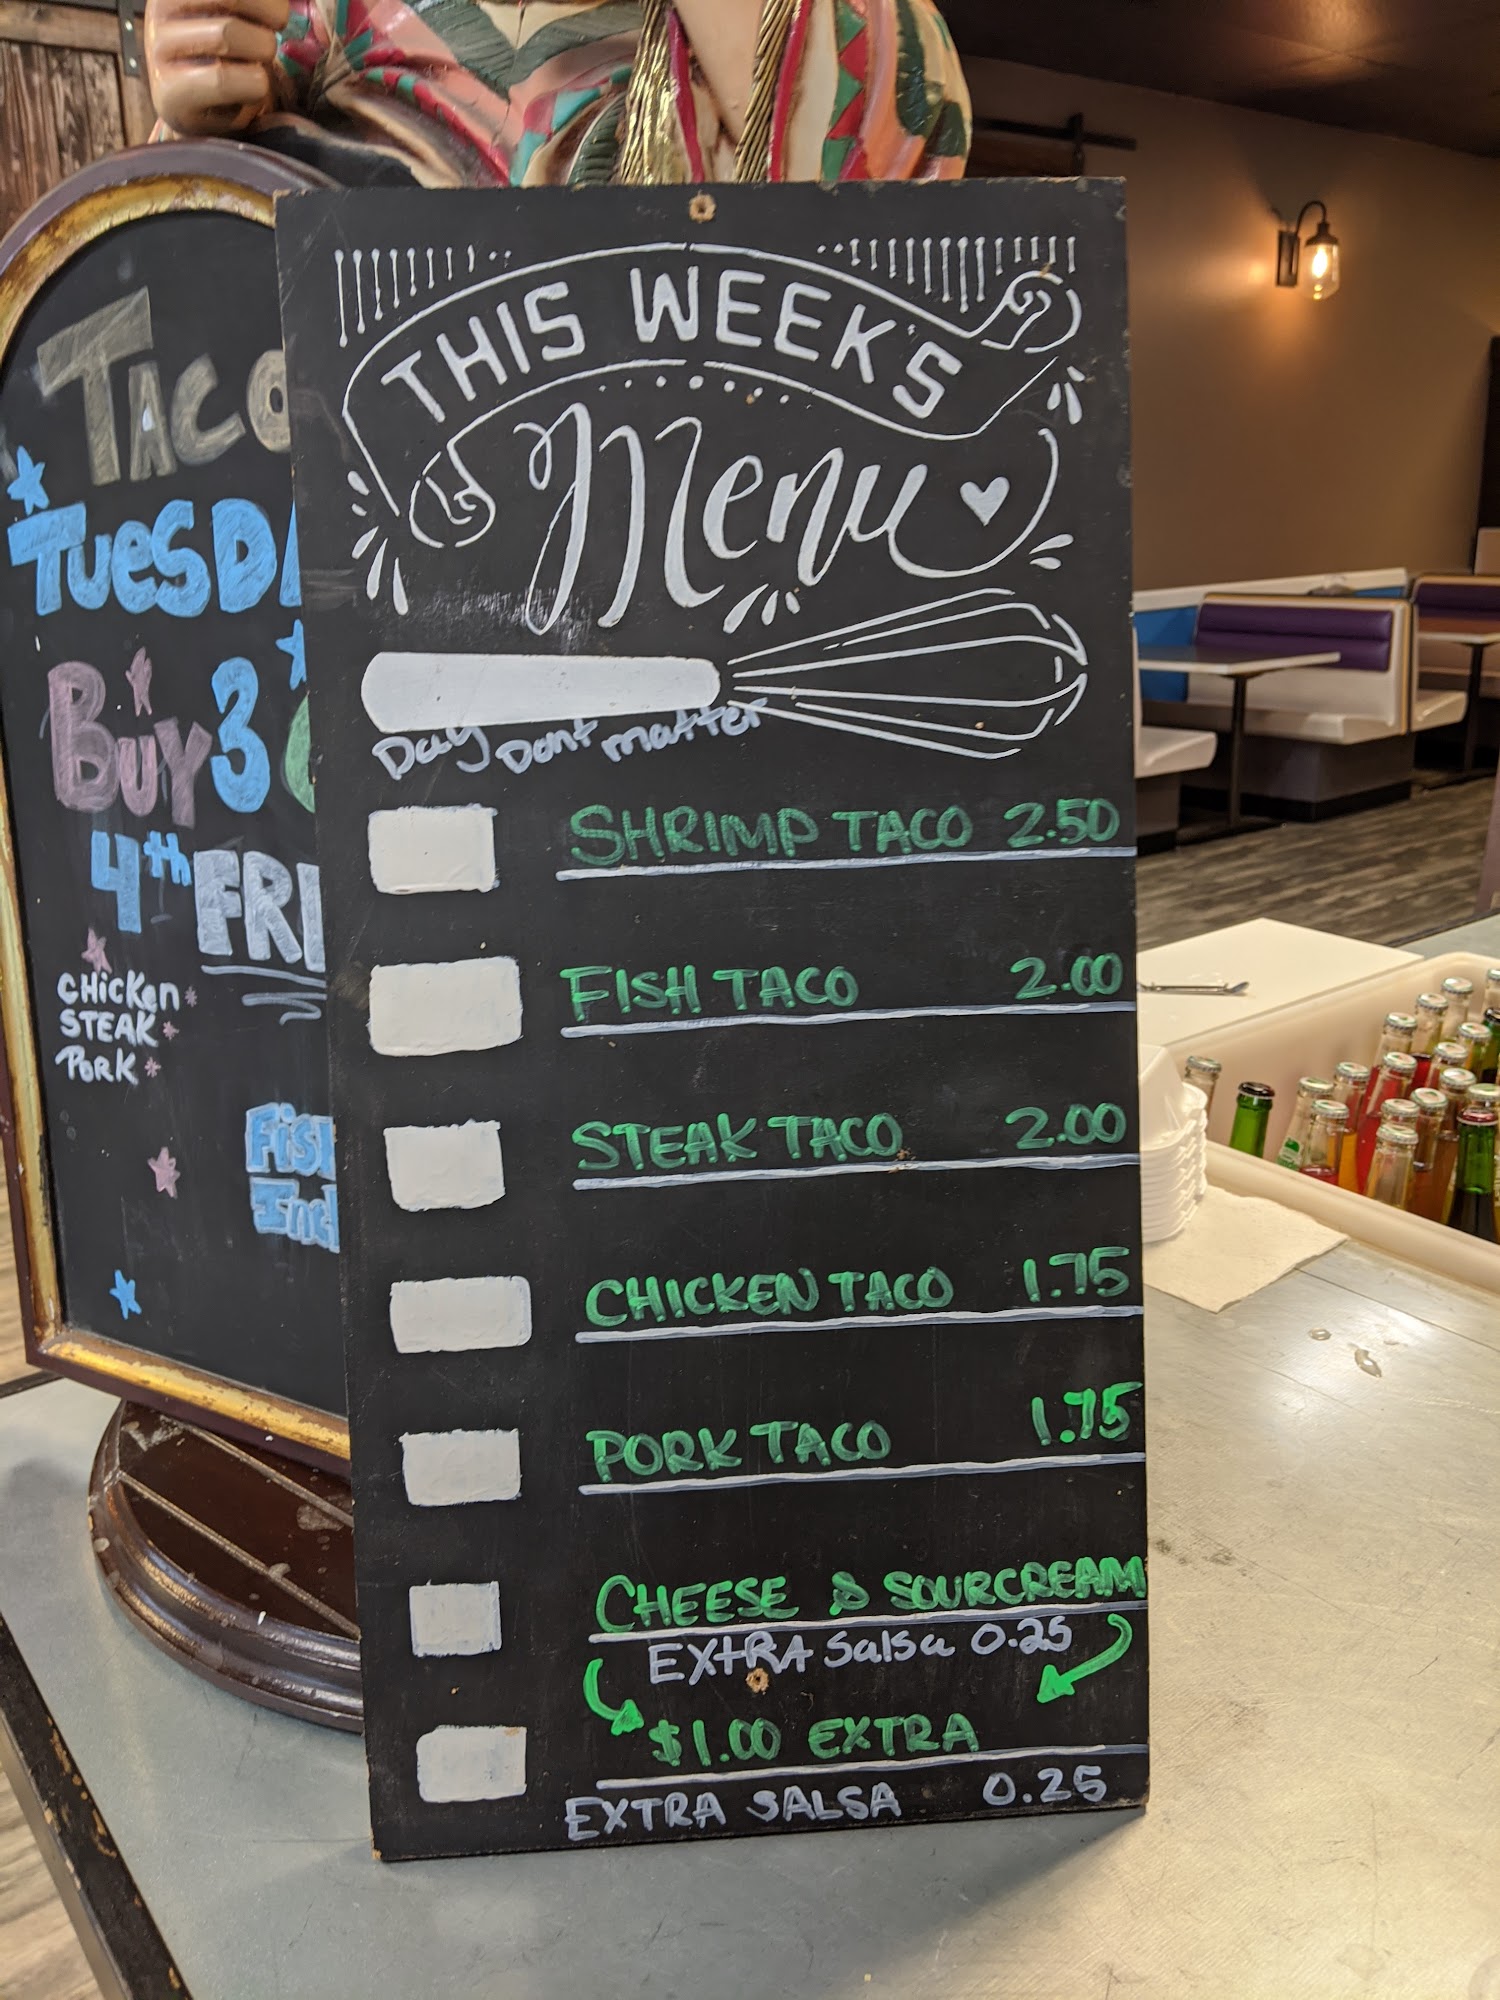 TACO
TUESDA
BUY 3
4th FRI
CHICKen
STEAK
PORK
FISH
Inc
THIS WEEK'S
Menu
Day Dont matter
SHRIMP TACO 2.50
FISH TACO 2.00
STEAK TACO 2.00
CHICKEN TACO 1.75
PORK TACO 1.75
CHEESE & SOURCREAM
EXTRA Salsa 0.25
$1.00 EXTRA
EXTRA SALSA 0.25